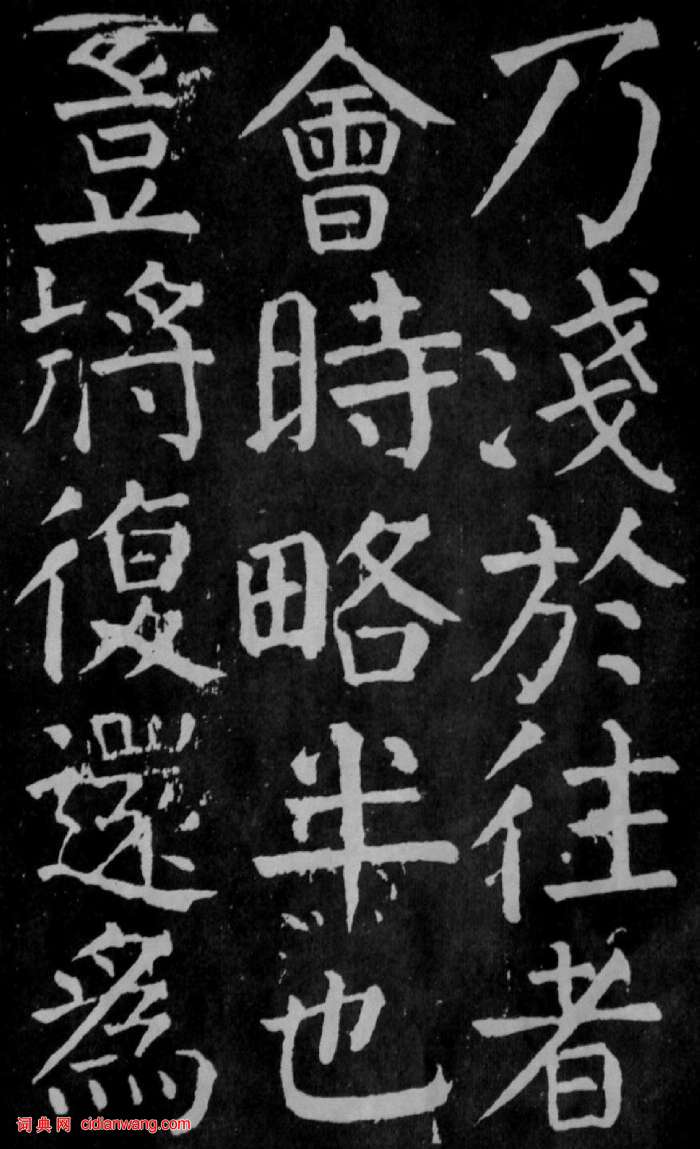 乃淺於往者
會時略半也
豈將復還爲
词典网 cidianwang.com